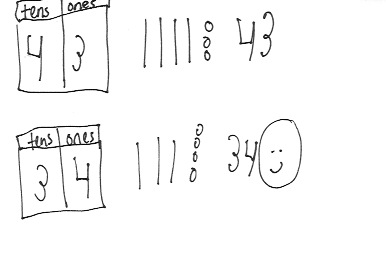 tens ones
4 3 43
tens ones
3 4 34